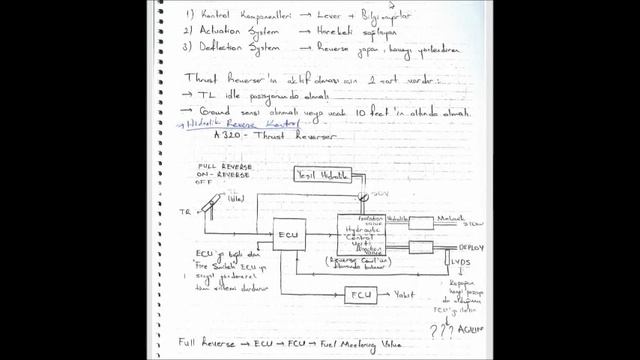 1) Kontrol Komponentleri → Lever + Bilgisayarlar
2) Actuation System → Hareketi sağlayan
3) Deflection System → Reverse yapan, havayı yönlendiren
Thrust Reverser'in aktif olması için 2 şart vardır:
→ TL idle pozisyonunda olmalı
→ Ground sensi alınmalı veya uçak 10 feet'in altında olmalı.
→ Hidrolik Reverse Kontrol
A320 - Thrust Reverser
FULL REVERSE
ON - REVERSE
OFF
Yeşil Hidrolik
TL
(idle)
SOV
TR
ECU
Isolation
Valve
Hydraulic
Control
Unit
Direction
Valve
Hidrolik
STOW
DEPLOY
LVDS
ECU'ya bağlı olan
"Fire Switch" ECU'ya
sinyal göndererek
tüm sistemi durdurur
(Reverse Cowl'un
altında bulunur)
FCU
Yakıt
Kapağın
hangi pozisyon
da olduğunu
??? AÇILIM
Full Reverse → ECU → FCU → Fuel Meetering Valve